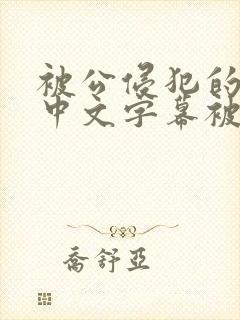 被公侵犯的
中文字幕被
喬舒亞